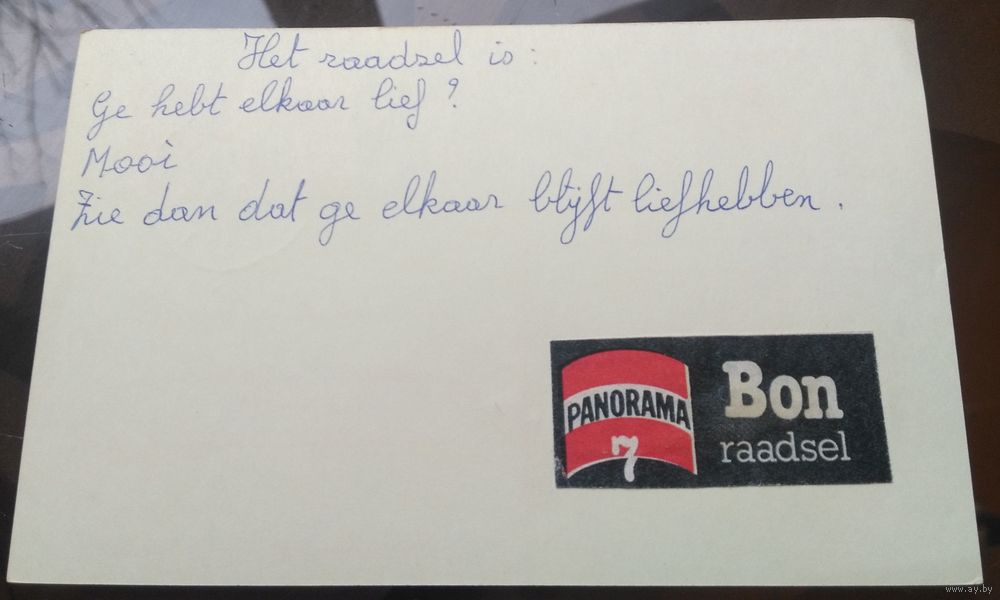 Het raadsel is:
Ge hebt elkaar lief?
Mooi
Zie dan dat ge elkaar blijft liefhebben.
PANORAMA
7
Bon
raadsel
www.ay.by